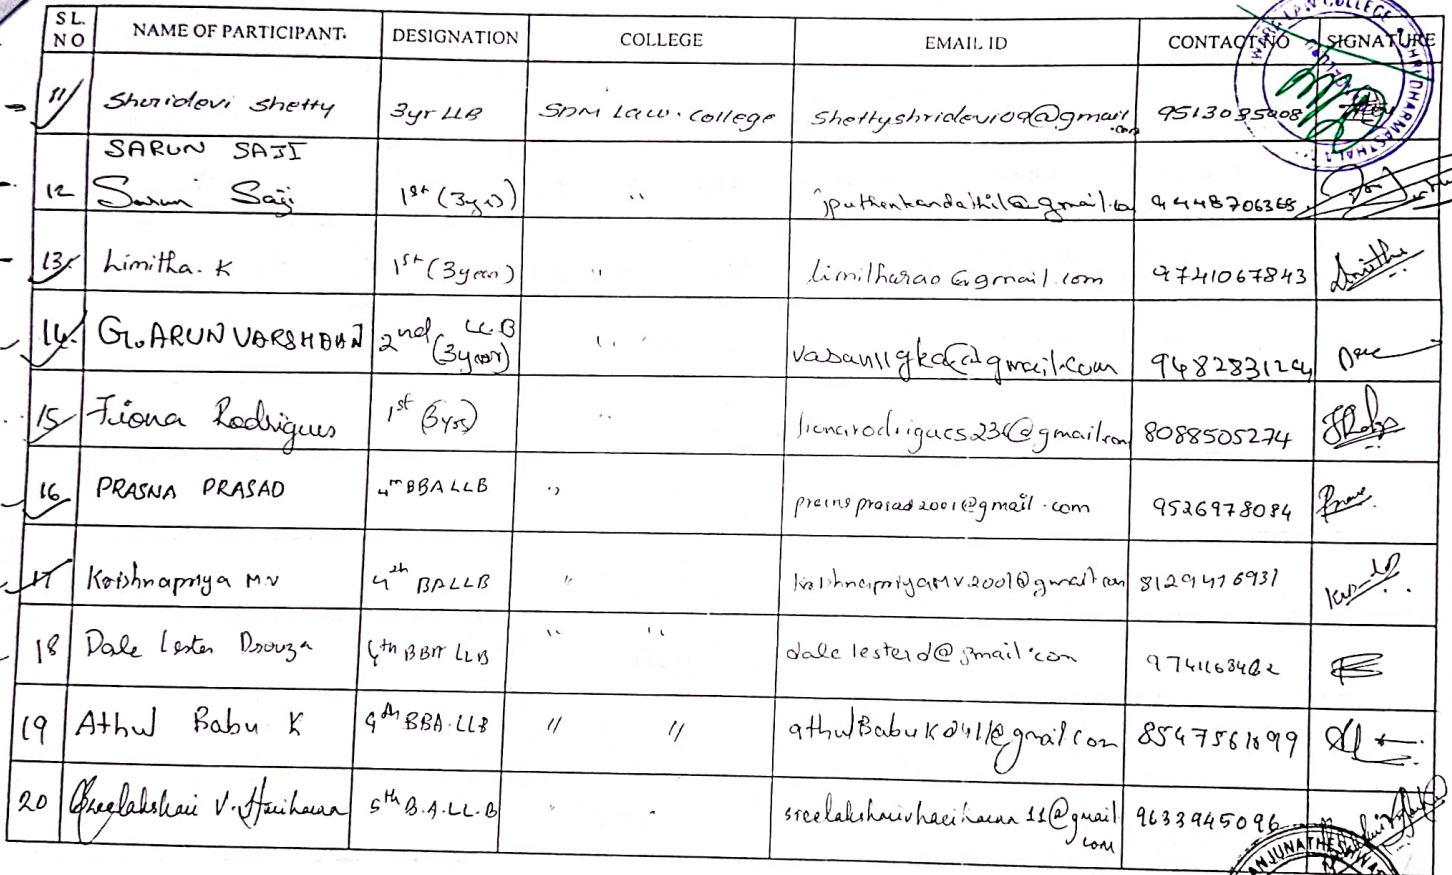 SL. NO NAME OF PARTICIPANT. DESIGNATION COLLEGE EMAIL ID CONTACT NO SIGNATURE
11 Shridevi Shetty 3yr LLB SDM Law College shettyshridevi09@gmail.com 9513035008
SARUN SAJI
12 Sarun Saji 1st (3yrs) " jputhenkandathil@gmail.co 9448706368
13. Limitha. K 1st (3year) " limitharao@gmail.com 9741067843
14. G. ARUN VARSHDAN 2nd LLB (3year) " @gmail.com
15 Fiona Rodrigues 1st (3yrs) " 8088505274
16 PRASNA PRASAD 4th BBA LLB " 9526978084
17 Krishnapriya M V 4th BALLB " krishnapriyaMV2001@gmail.com 8129476937
18 Dale Lester Dsouza 4th BBA LLB " " dalelesterd@gmail.com
19 Athul Babu K 4th BBA.LLB " " athulBabuK2411@gmail.com 8547561099
20 Sreelakshmi V. Hariharan 5th B.A.LL.B " " sreelakshmivhariharan11@gmail.com 9633945096